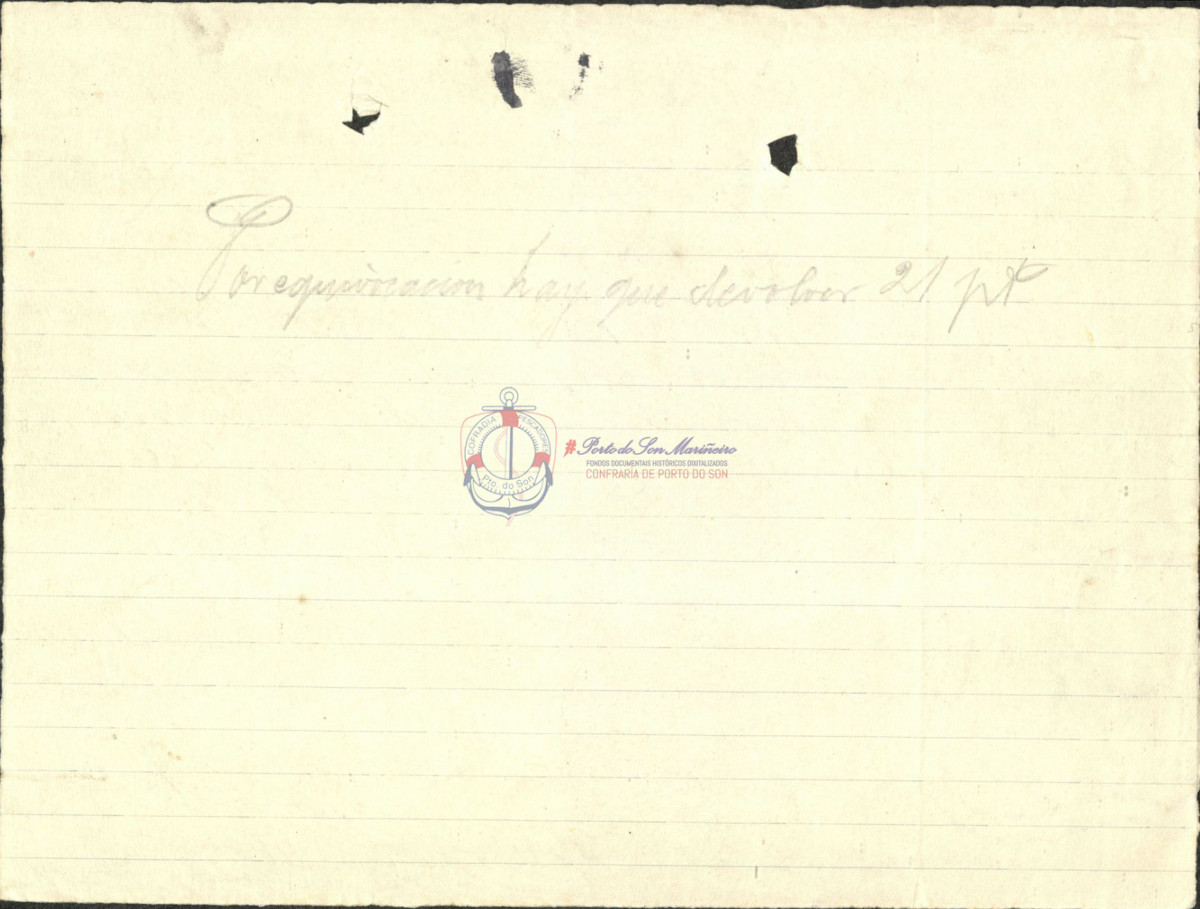 Por equivocacion hay que devolver 21 pt
COFRADIA PESCADORES
Pto. do Son
#Porto do Son Mariñeiro
FONDOS DOCUMENTAIS HISTÓRICOS DIXITALIZADOS
CONFRARÍA DE PORTO DO SON